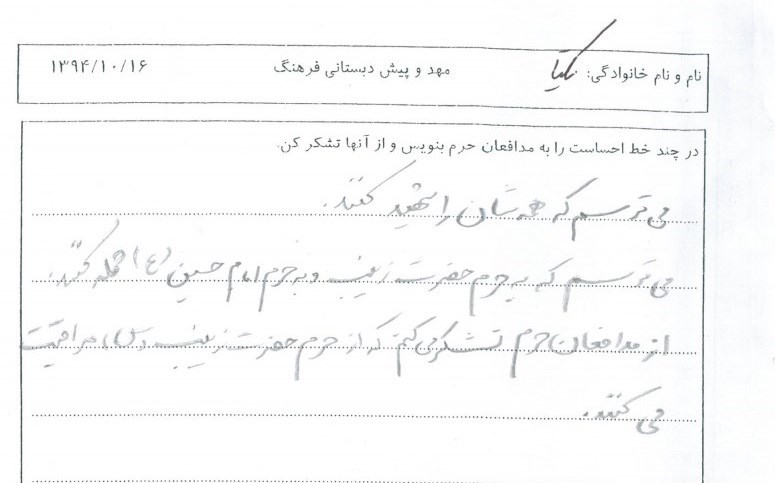 نام و نام خانوادگی: یکتا مهد و پیش دبستانی فرهنگ ۱۳۹۴/۱۰/۱۶
در چند خط احساست را به مدافعان حرم بنویس و از آنها تشکر کن.
می ترسم که همه شان را شهید کنند.
می ترسم که به حرم حضرت زینب و به حرم امام حسین (ع) حمله کنند.
از مدافعان حرم تشکر می کنم که از حرم حضرت زینب (س) مراقبت
می کنند.